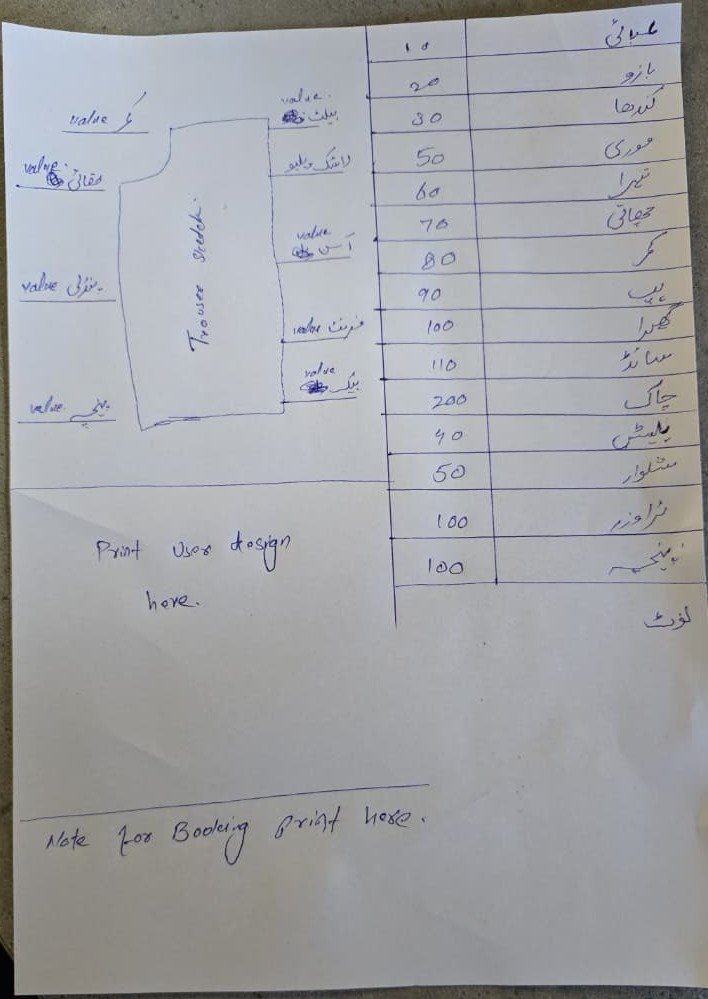 10 لمبائی
20 بازو
30 کندھا
50 موری
60 تیرا
70 چھاتی
80 کمر
90 ہپ
100 گھیرا
110 سائڈ
200 چاک
40 پلیٹس
50 شلوار
100 ٹراوزر
100 پینچہ
نوٹ
value کمر
value
value.
value پنڈلی
value. پینچہ
Trouser sketch.
value.
بیلٹ
لاسٹک ویلیو
value
آسن
value فرنٹ
value
بیک
Print User design
here.
Note for Booking print here.